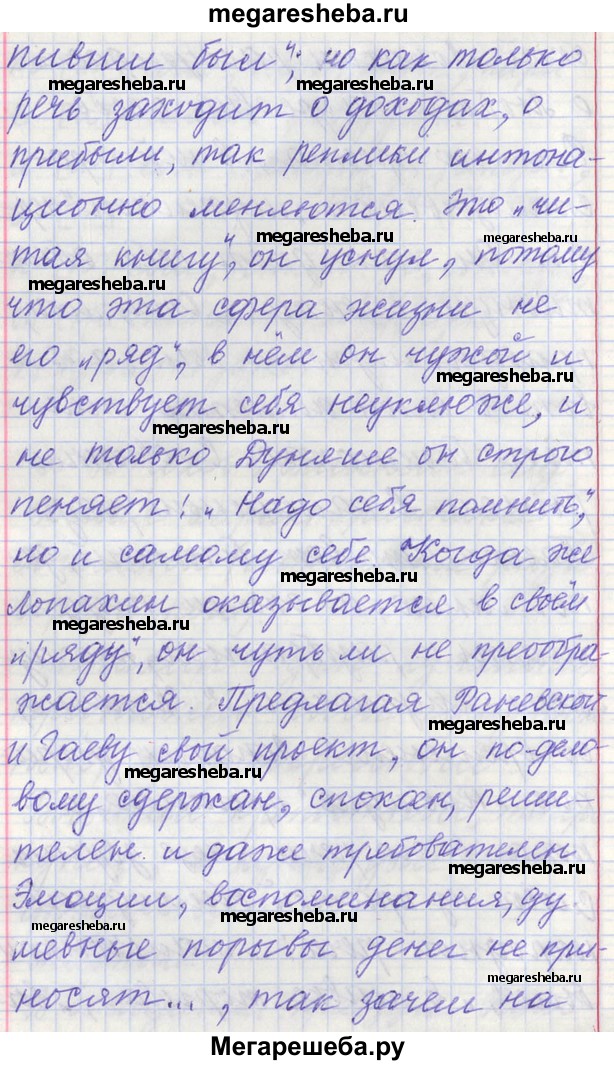 megaresheba.ru
пивши был"; но как только
megaresheba.ru megaresheba.ru
речь заходит о доходах, о
прибыли, так реплики интона-
ционно меняются. Это „чи-
megaresheba.ru megaresheba.ru
тая книгу", он уснул, потому
megaresheba.ru
что эта сфера жизни не
его „ряд", в нём он чужой и
megaresheba.ru
чувствует себя неуклюже, и
megaresheba.ru
не только Дуняше он строго
пеняет: „Надо себя помнить",
но и самому себе. Когда же
megaresheba.ru
Лопахин оказывается в своём
megaresheba.ru
„ряду", он чуть ли не преобра-
жается. Предлагая Раневской
megaresheba.ru
и Гаеву свой проект, он по-дело-
megaresheba.ru
вому сдержан, спокоен, реши-
телен. и даже требователен.
megaresheba.ru
Эмоции, воспоминания, ду
megaresheba.ru megaresheba.ru
шевные порывы денег не при-
megaresheba.ru
носят..., так зачем на
Мегарешеба.ру